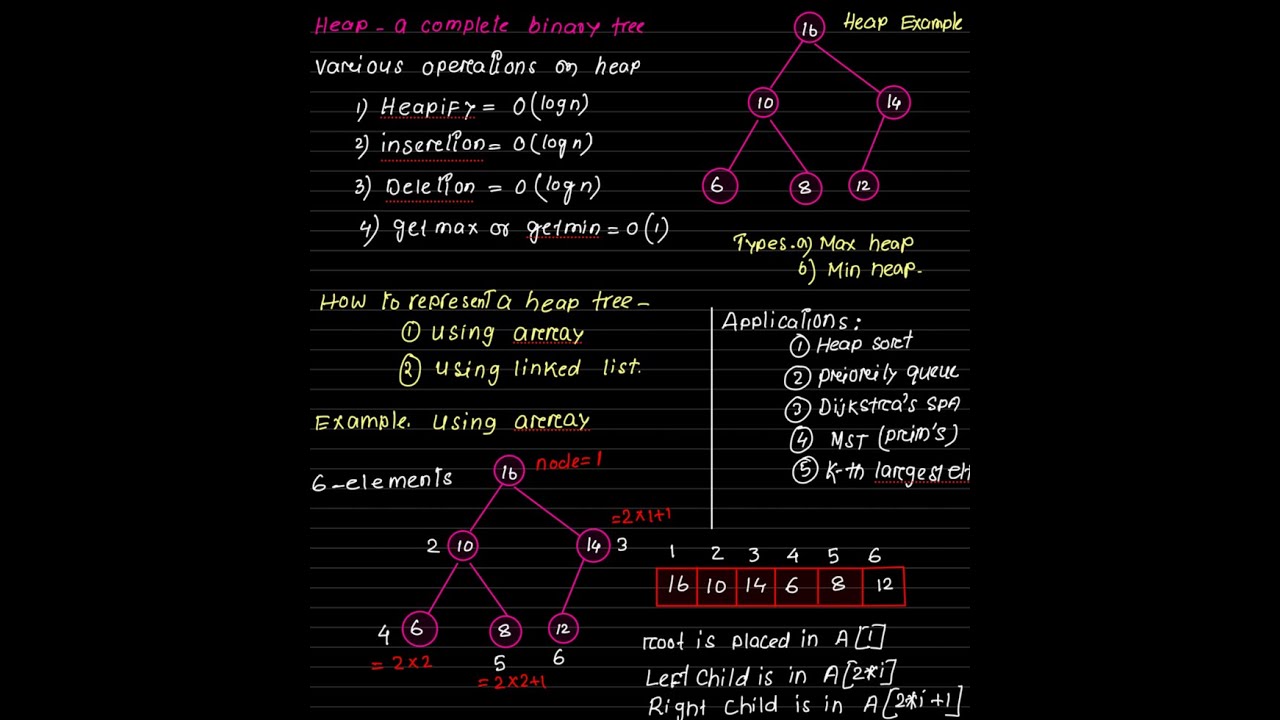 Heap - a complete binary tree
Various operations on heap
1) Heapify = O(log n)
2) insertion = O(log n)
3) Deletion = O(log n)
4) get max or getmin = O(1)
Heap Example
16
10 14
6 8 12
Types - a) Max heap
b) Min heap.
How to represent a heap tree -
① using array
② using linked list.
Applications:
① Heap sort
② priority queue
③ Dijkstra's SPA
④ MST (prim's)
⑤ K-th largest el
Example. using array
6-elements
16 node=1
=2×1+1
2 10 14 3
4 6 8 12
= 2×2 5 6
= 2×2+1
1 2 3 4 5 6
16 10 14 6 8 12
root is placed in A[1]
Left child is in A[2*i]
Right child is in A[2*i+1]